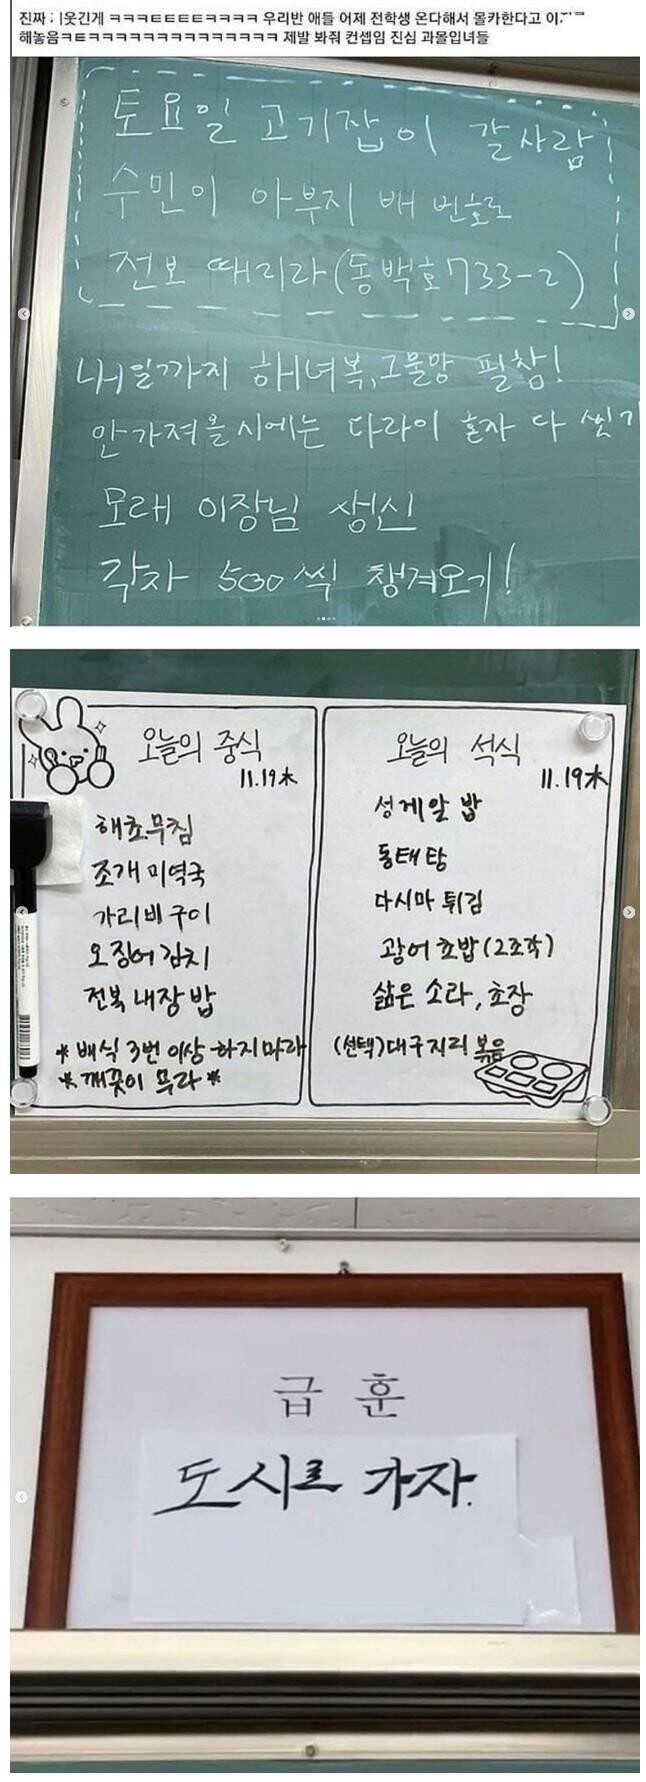 진짜 웃긴게 ㅋㅋㅋㅌㅌㅌㅌㅋㅋㅋㅋ 우리반 애들 어제 전학생 온다해서 몰카한다고
해놓음ㅋㅌㅋㅋㅋㅋㅋㅋㅋㅋㅋㅋㅋㅋㅋㅋ 제발 봐줘 컨셉임 진심 과몰입녀들
토요일 고기잡이 갈사람
수민이 아부지 배 번호로
전보 때리라(동백호733-2)
내일까지 해녀복, 그물망 필참!
안가져올시에는 다라이 혼자 다 씻기
모레 이장님 생신
각자 500씩 챙겨오기!
오늘의 중식
11.19木
해초무침
조개 미역국
가리비구이
오징어김치
전복 내장 밥
*배식 3번 이상 하지마라
*깨끗이 무라*
오늘의 석식
11.19木
성게알 밥
동태탕
다시마 튀김
광어 초밥(2조각)
삶은 소라, 초장
(선택)대구지리 볶음
급훈
도시로 가자.